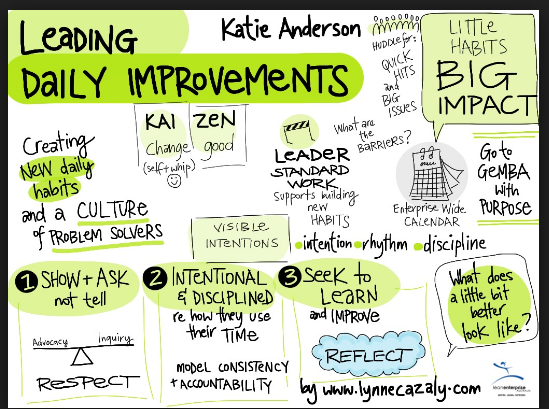 LEADING
DAILY IMPROVEMENTS
Katie Anderson
HUDDLE for:
QUICK
HITS
and
BIG
ISSUES
LITTLE
HABITS
BIG
IMPACT
KAI ZEN
change good
(self + whip)
Creating
NEW daily
habits
and a CULTURE
of PROBLEM SOLVERS
LEADER
STANDARD
WORK
Supports building
new
HABITS
What are
the
BARRIERS?
Enterprise Wide
CALENDAR
Go to
GEMBA
with
PURPOSE
VISIBLE
INTENTIONS
intention rhythm discipline
1 SHOW + ASK
not tell
Advocacy Inquiry
RESPECT
2 INTENTIONAL
& DISCIPLINED
re how they use
their TIME
MODEL CONSISTENCY
+ ACCOUNTABILITY
3 SEEK to
LEARN
and IMPROVE
REFLECT
by www.lynnecazaly.com
What does
a little bit
better
look like?
leanenterprise